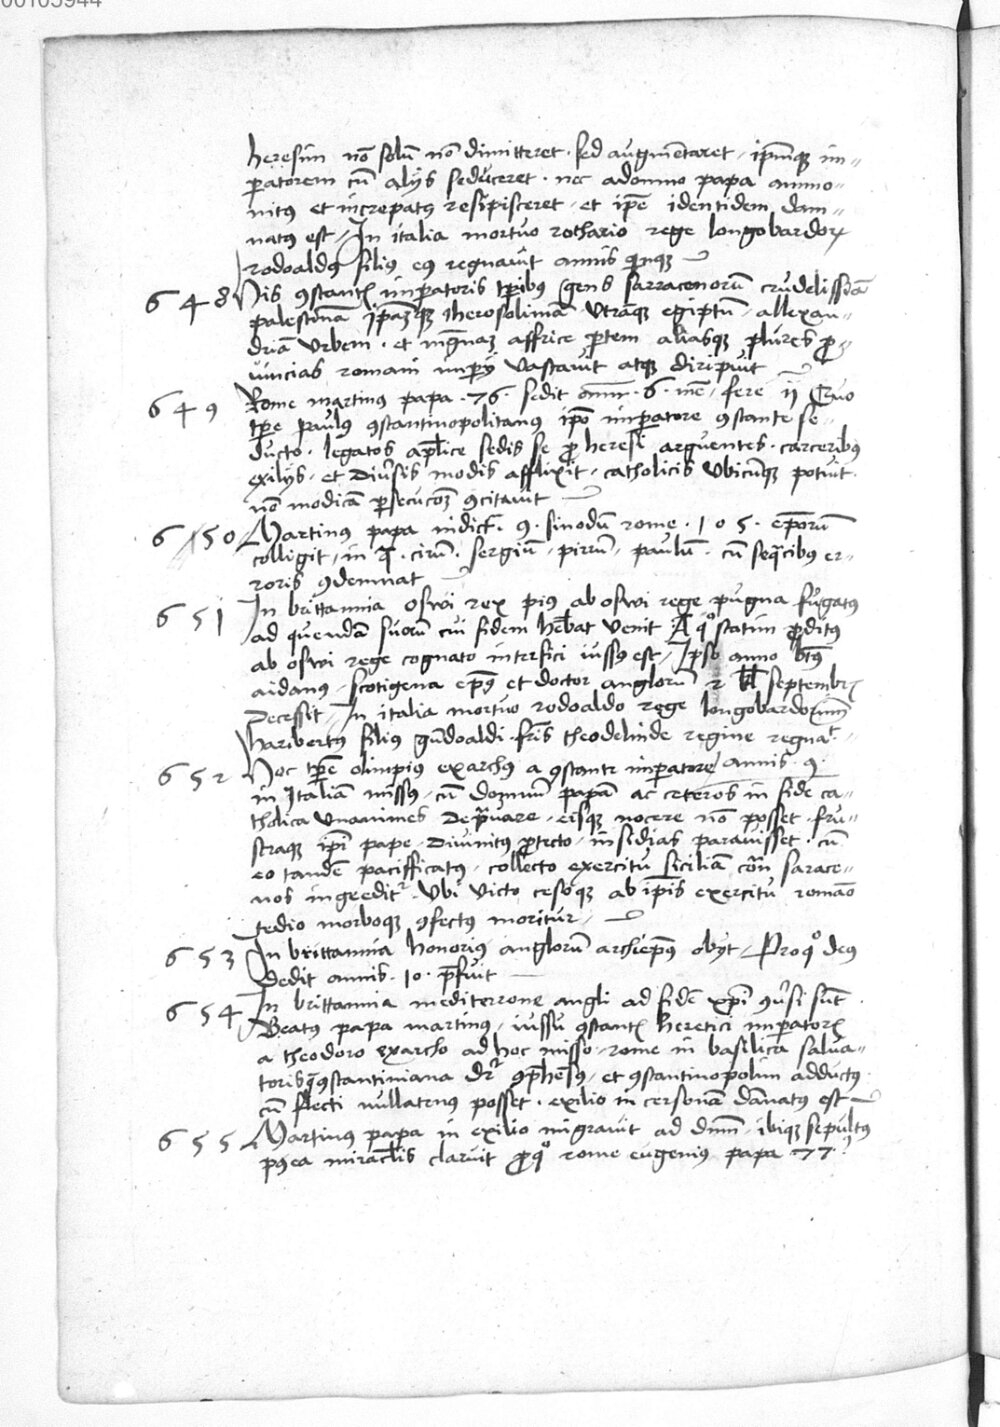 00103944
heresim nō solū nō dimitteret · sed augmētaret / ip̄mq̄ꝫ im-
ꝑatorem cū alijs seduceret · nec a domno papa ammo-
nitꝰ et increpatꝰ resipisceret / et ip̄e identidem dam-
natꝰ est / In italia mortuo rothario rege longobardoꝝ
rodoaldꝰ filiꝰ eꝰ regnauit annis quinqꝫ
648 His ꝯstantꝭ imꝑatoris tꝑibus gens sarracenorū crudelissīa
palestinā ip̄amqꝫ iherosolimā utrāqꝫ egiptū / allexan-
driā urbem · et mᵃgnaꝫ affrice ꝑtem aliasqꝫ plures ꝓ-
uincias romani imꝑij vastauit atqꝫ diripuit
649 Rome martinus papa · 76 · sedit ann̄ · 6 · mē / fere ij Quo
tꝑe paulꝰ ꝯstantinopolitanus ip̄o imꝑatore ꝯstante se-
ducto · legatos ap̄lice sedis se ꝓ heresi arguentes · carceribus
exilijs / et diu̓sis modis afflixit / catholicis ubicūqꝫ potuit
nō modicā ꝑsecucōeꝫ ꝯcitauit
650 Martinus papa indict̄ · 9 · sinodū rome · 105 · ep̄orum
colligit / in qᵃ · cirū · sergiū / pirrū / paulū · cū seqᵃcibus er-
roris ꝯdemnat
651 In brittannia oswi rex pius ab oswi rege pugna fugatus
ad quendā suorū cui fidem heƀat venit A qͦ statim ꝓditus
ab oswi rege cognato interfici iussus est / Ipso anno btūs
aidanus / scotigena ep̄us et doctor anglorū 2 kl septembrꝭ
decessit / In italia mortuo rodoaldo rege longobardorum
haribertus filius gūdoaldi · fris̄ theodelinde regine regnaᵗ
652 Hoc tꝑe olimpius exarchus a ꝯstante imꝑatore / annis · 9 ·
in Italiā missus / cū domnū papā ac ceteros in fide ca-
tholica unanimes deprᵃuare / eisqꝫ nocere nō posset · fru-
straqꝫ ip̄i pape / diuinitus ꝓtecto / insidias parauisset · cū
eo tandē pacifficatus / collecto exercitu siciliā cōᵃ sarace-
nos ingreditʳ · ubi victo cesoqꝫ ab ip̄is exercitu romāo
tedio morboqꝫ ꝯfectus moritur /
653 In brittannia honorius anglorū archiep̄us obijt / Pro qͦ deus
dedit annis · 10 · p̄fuit
654 In brittannia mediterrone angli ad fidē xp̄i ꝯu̓si sūt
Beatus papa martinus / iussu ꝯstantꝭ heretici imꝑatorꝭ
a theodoro exarcho ad hoc misso / rome in basilica salua-
toris q̄ ꝯstantiniana drʳ ꝯp̄hēsus / et ꝯstantinopolim adductus
cū flecti nullatenus posset · exilio in cersonā dānatus est
655 Martinus papa in exilio migrauit ad dnm̄ / ibiqꝫ sepultus
pꝰea miraclīs claruit ꝓ qͦ rome eugenius papa 77